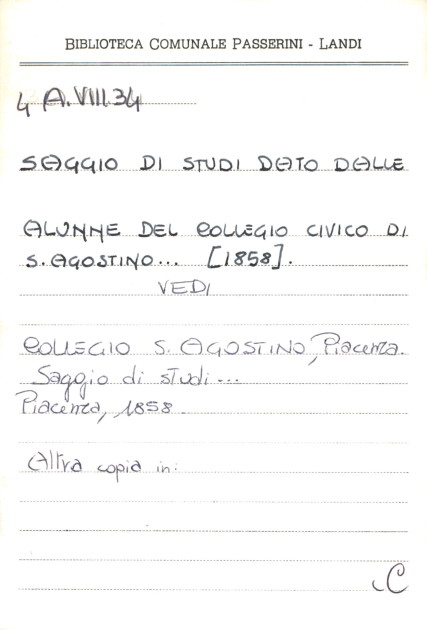 BIBLIOTECA COMUNALE PASSERINI - LANDI
4 A.VIII.34
SAGGIO DI STUDI DATO DALLE
ALUNNE DEL COLLEGIO CIVICO DI
S. AGOSTINO... [1858].
VEDI
COLLEGIO S. AGOSTINO, Piacenza.
Saggio di studi...
Piacenza, 1858.
Altra copia in:
C